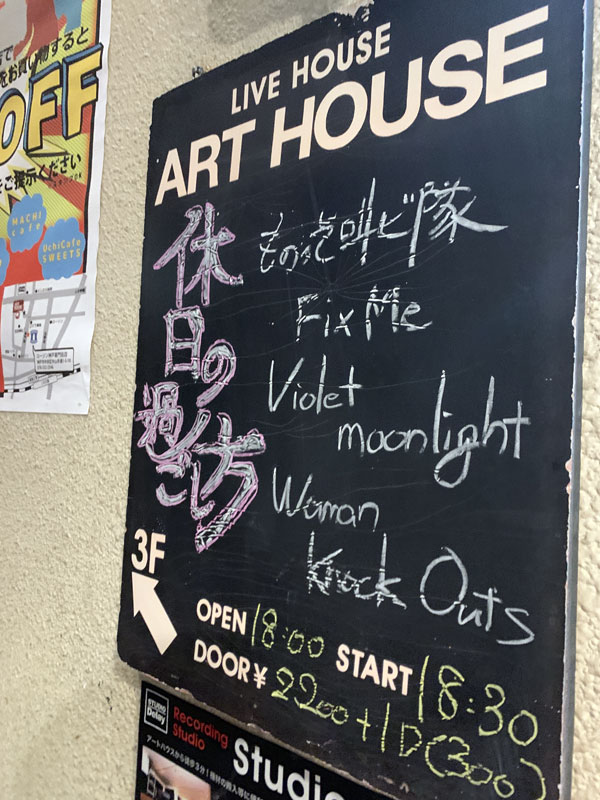 をお買い物すると
OFF
をご提示ください
MACHI
cafe
UchiCafe
SWEETS
LIVE HOUSE
ART HOUSE
休日の過ごし方
もの売叫ビ隊
Fix Me
Violet
moonlight
Woman
Knock Outs
3F
OPEN 18:00 START 18:30
DOOR ¥ 2200+1D(300)
STUDIO
Delay
Recording
Studio
Studio
アートハウスから徒歩3分!